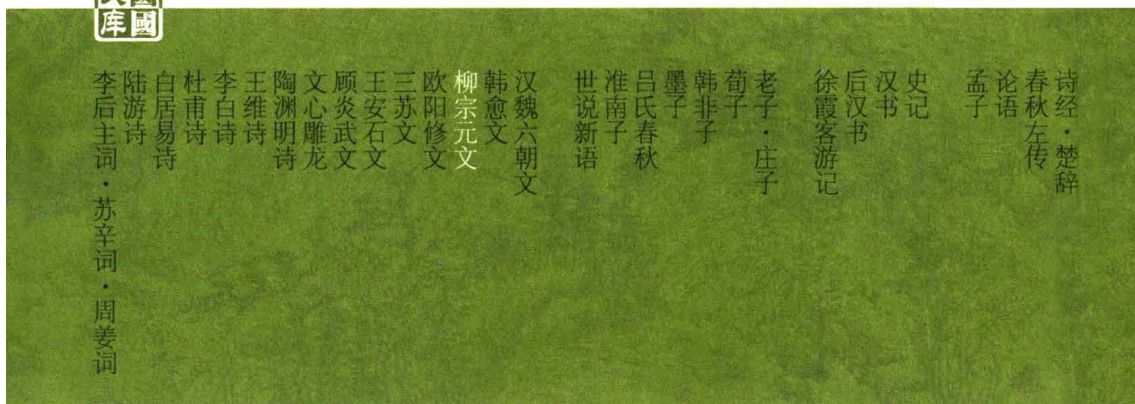 库國
诗经·楚辞
春秋左传
论语
孟子
史记
汉书
后汉书
徐霞客游记
老子·庄子
荀子
韩非子
墨子
吕氏春秋
淮南子
世说新语
汉魏六朝文
韩愈文
柳宗元文
欧阳修文
三苏文
王安石文
顾炎武文
文心雕龙
陶渊明诗
王维诗
李白诗
杜甫诗
白居易诗
陆游诗
李后主词·苏辛词·周姜词